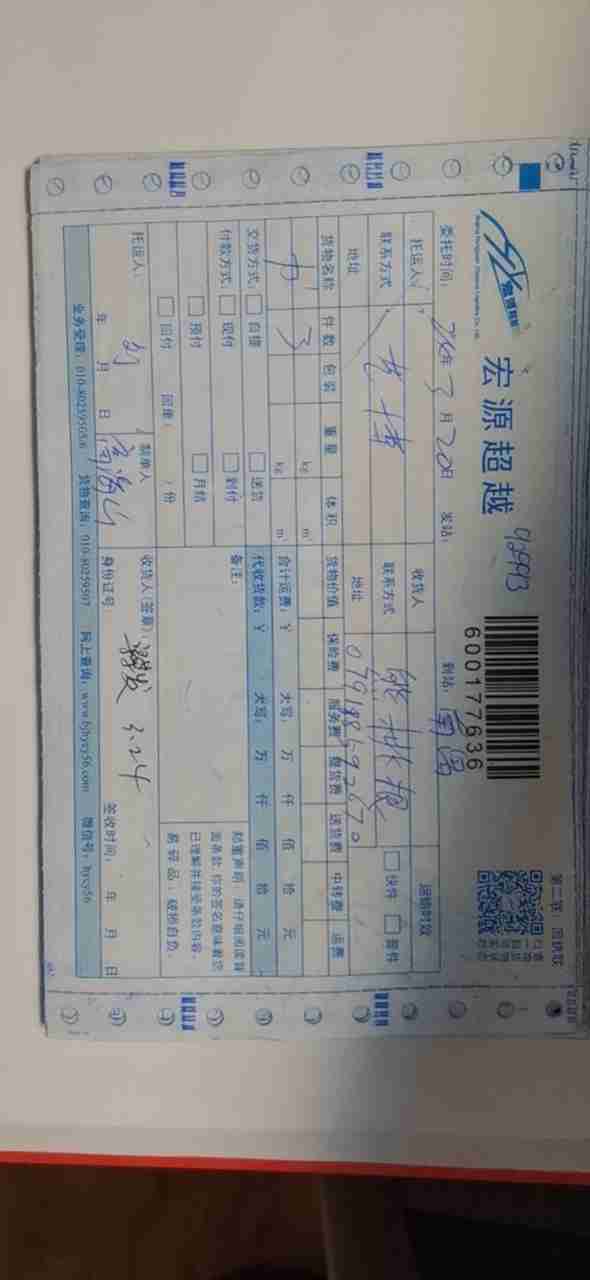 宏源超越
98993
600177636
第二联 回执联
委托时间： 年 3 月 20日 发站： 到站：南昌
托运人 收货人 运输时效
联系方式 联系方式 快件 普件
地址 地址 07918859267
货物名称 件数 包装 重量 体积 货物价值 保险费 服务费 提货费 送货费 中转费 运费
3 kg m³
kg m³ 合计运费：￥ 大写： 万 仟 佰 拾 元
交货方式： 自提 送货 代收货款：￥ 大写： 万 仟 佰 拾 元
付款方式： 现付 到付 备注：
预付 月结
回付 回单： 份
郑重声明：请仔细阅读背
面条款，你的签名意味着您
已理解并接受条款内容。
易碎品，破损自负。
托运人： 制单人 收货人(签章)： 3.24
年 月 日 身份证号： 签收时间： 年 月 日
业务受理：010-80259505/6 货物查询：010-80259507 网上查询：www.bjhycy56.com 微信号：hycy56